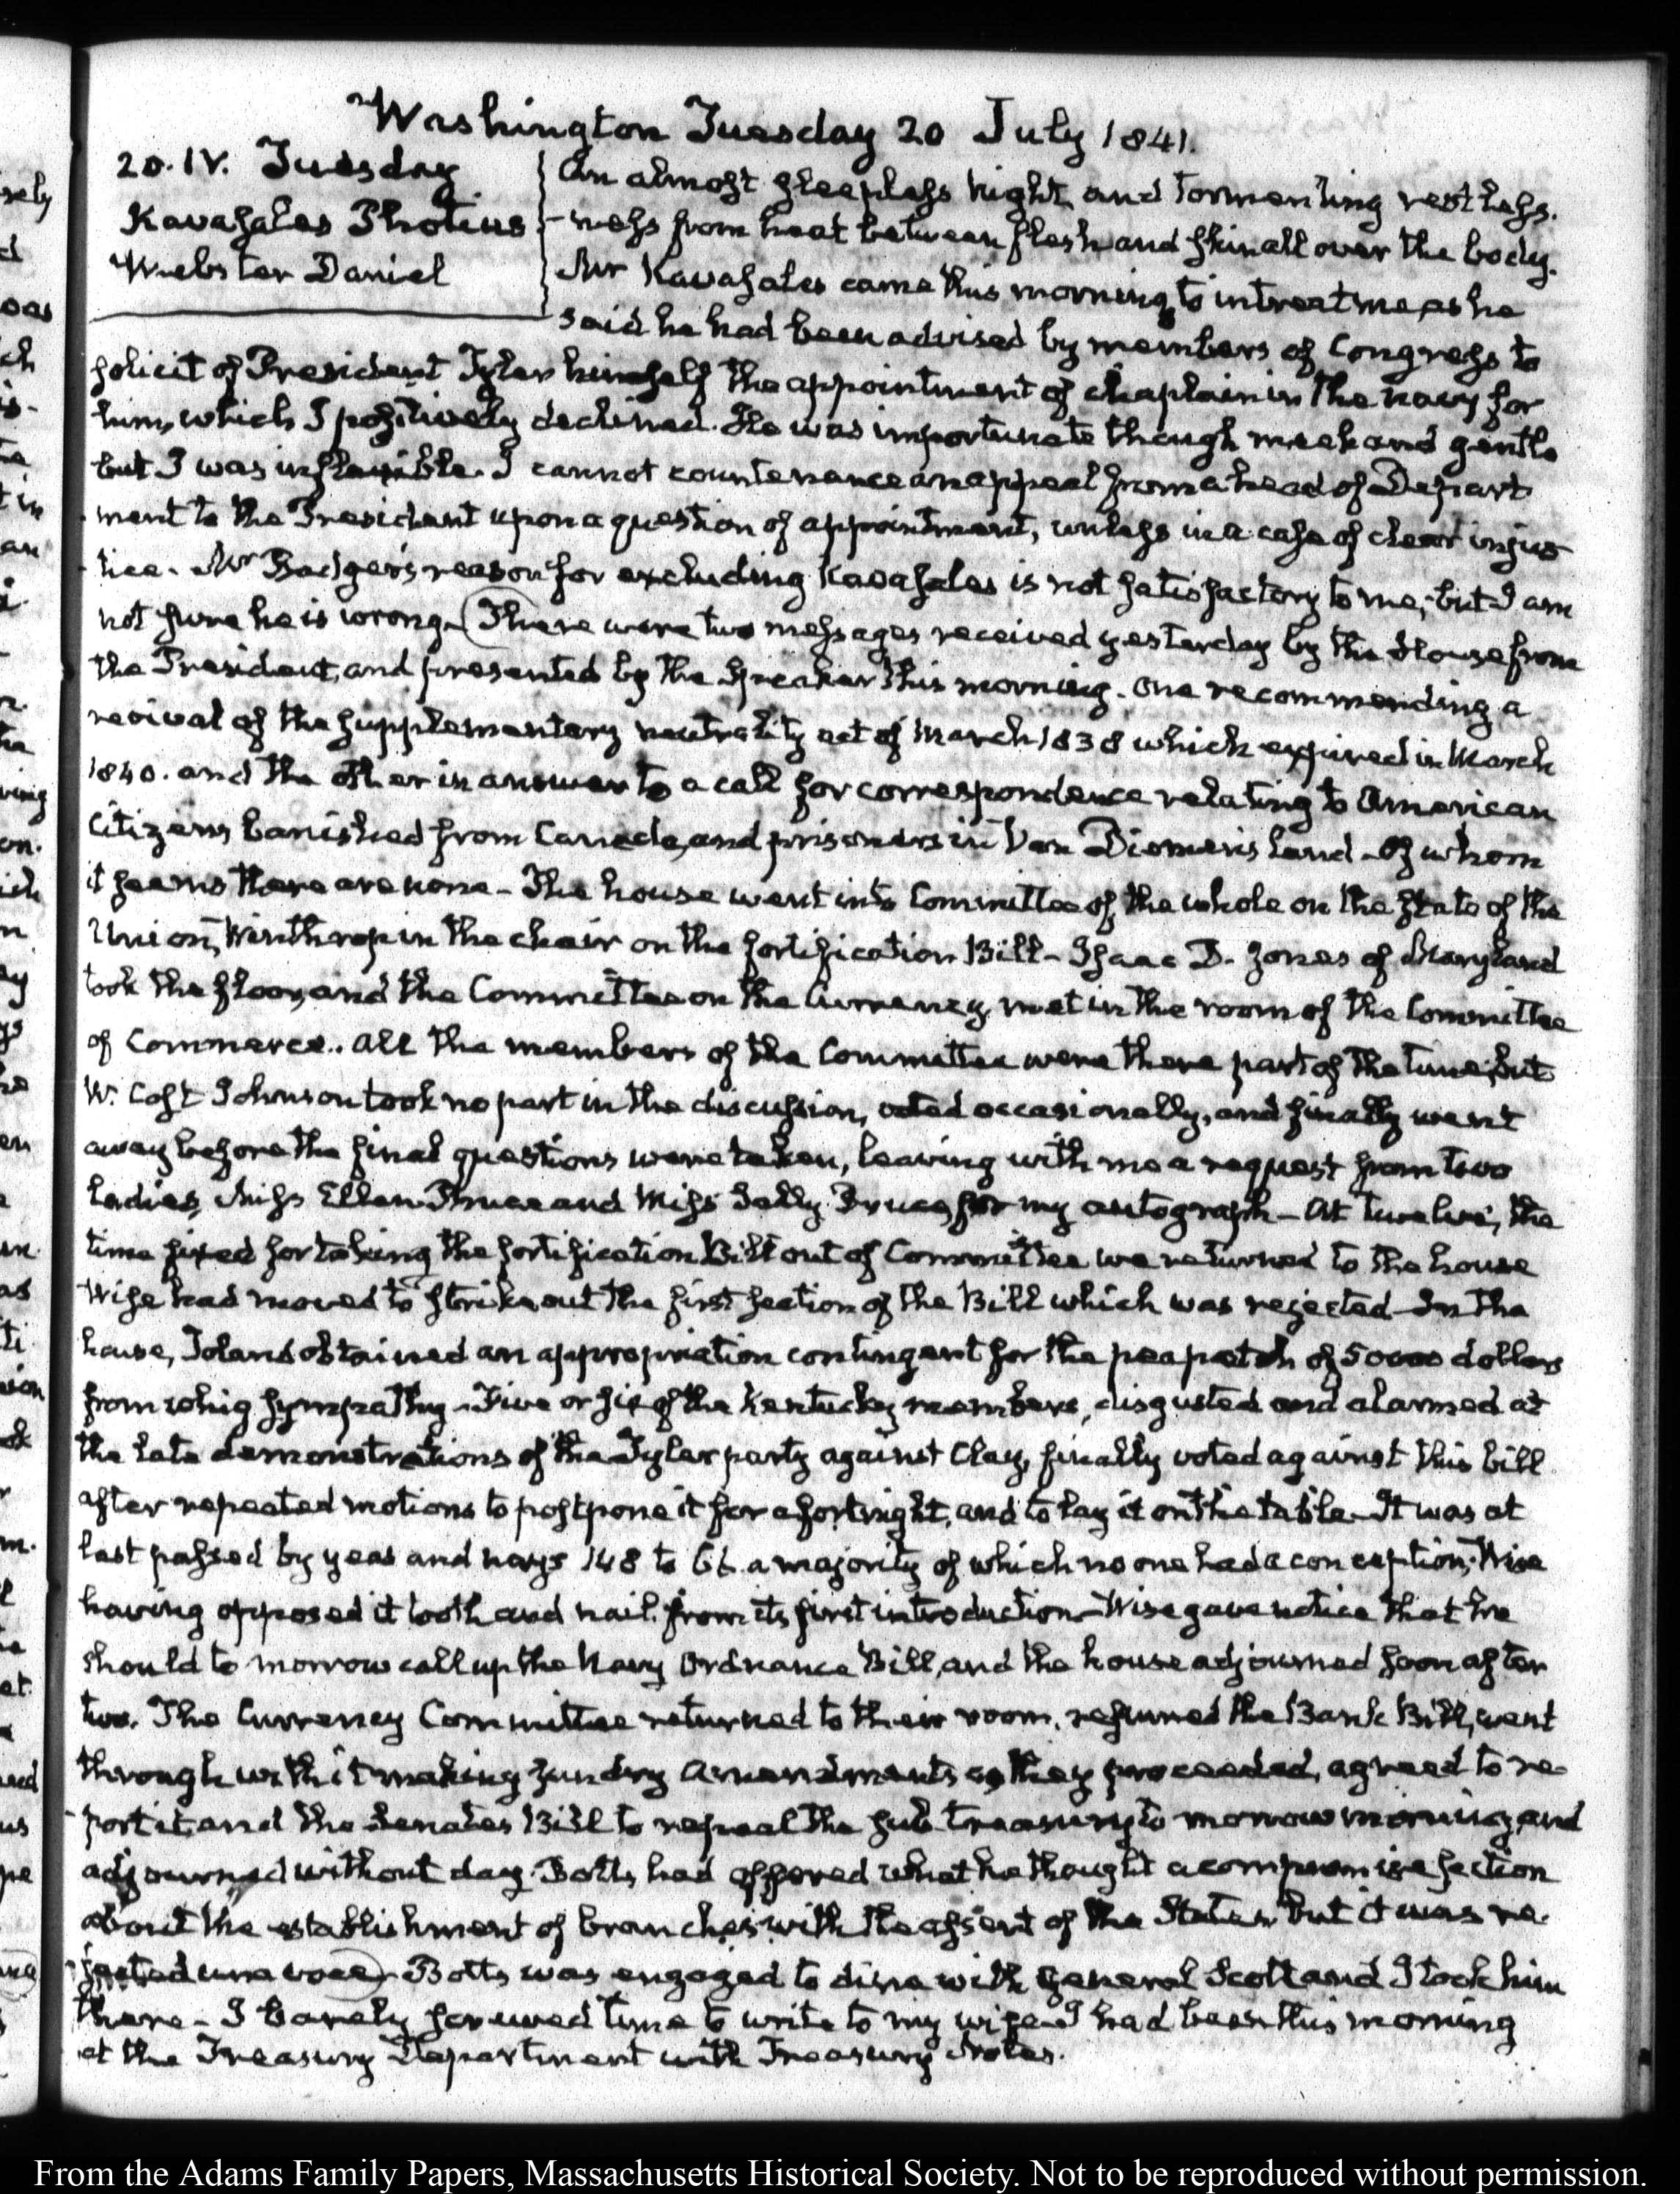 Washington Tuesday 20 July 1841.
20. IV. Tuesday
Kavasales Photius
Webster Daniel
An almost sleepless night and tormenting restless-
-ness from heat between flesh and skin all over the body.
Mr Kavasales came this morning to intreat me as he
said he had been advised by members of Congress to
solicit of President Tyler himself the appointment of chaplain in the navy for
him, which I positively declined. He was importunate though meek and gentle
but I was inflexible. I cannot countenance an appeal from a head of Depart
ment to the President upon a question of appointment, unless in a case of clear injus
tice. Mr Badger's reason for excluding Kavasales is not satisfactory to me, but I am
not sure he is wrong. There were two messages received yesterday by the House from
the President, and presented by the Speaker this morning. One recommending a
revival of the supplementary neutrality act of March 1838 which expired in March
1840. and the other in answer to a call for correspondence relating to American
Citizens banished from Canada, and prisoners in Van Diemen's Land - Of whom
it seems there are none - The house went into Committee of the whole on the state of the
Union, Winthrop in the chair on the fortification Bill - Isaac D. Jones of Maryland
took the floor, and the Committee on the Currency, met in the room of the Committee
of Commerce.. All the members of the Committee were there part of the time, but
W. Cost Johnson took no part in the discussion, voted occasionally, and finally went
away before the final questions were taken, leaving with me a request from two
Ladies, Miss Ellen Bruce and Miss Sally Bruce, for my autograph - At twelve, the
time fixed for taking the fortification Bill out of Committee we returned to the house
Wise had moved to strike out the first section of the Bill which was rejected - In the
house, Toland obtained an appropriation contingent for the of 50000 dollars
from whig sympathy - Five or six of the Kentucky members, disgusted and alarmed at
the late demonstrations of the Tyler party against Clay, finally voted against this bill
after repeated motions to postpone it for a fortnight, and to lay it on the table - It was at
last passed by yeas and nays 148 to 66. a majority of which no one had a conception, Wise
having opposed it tooth and nail from its first introduction - Wise gave notice that he
should to morrow call up the Navy Ordnance Bill, and the house adjourned soon after
two. The Currency Committee returned to their room, resumed the Bank Bill, went
through with it making sundry amendments as they proceeded, agreed to re-
-port it and the Senate's Bill to repeal the sub-treasury to morrow morning, and
adjourned without day. Botts, had offered what he thought a compromise section
about the establishment of branches with the assent of the States but it was re-
-jected una voce - Botts was engaged to dine with General Scott and I took him
there - I barely saved time to write to my wife - I had been this morning
at the Treasury Department with Treasury Notes.
From the Adams Family Papers, Massachusetts Historical Society. Not to be reproduced without permission.